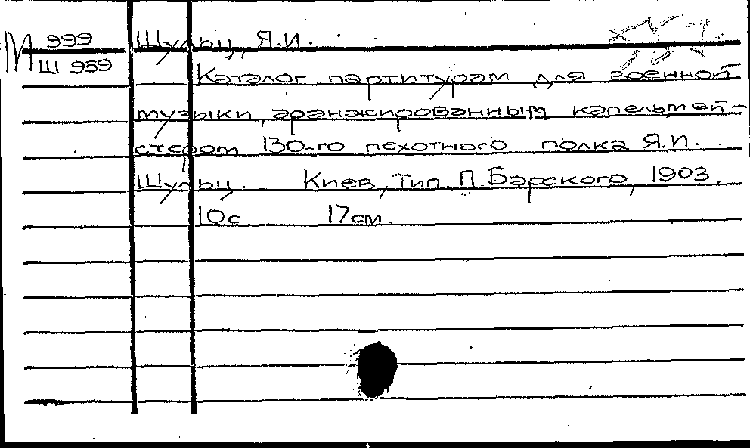 М 999 Шульц, Я.И.
Ш 959
Каталог партитурам для военной
музыки, аранжированным капельмей-
стером 130-го пехотного полка Я.И.
Шульц. Киев, тип. П.Барского, 1903.
10с 17см.